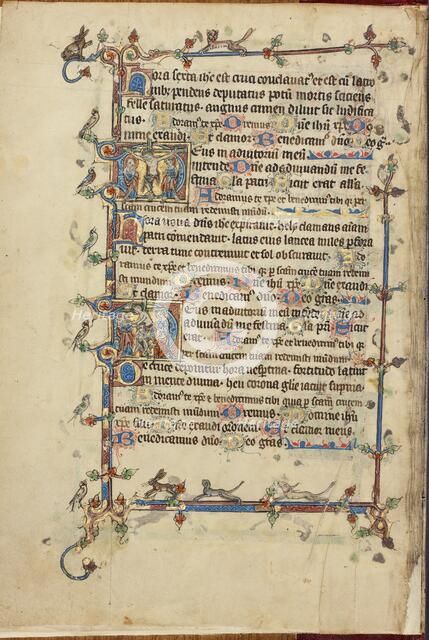 Hora sexta ihc est cruci conclavat' et est cu latro
nib; pendens deputatus potu mortis saciens
felle saturatus. angnus crimen diluit sic ludifica
tus. Adoram' te xpe Oremus Dne ihu xpe Do
mine exaudi. Et clamor. Benedicam' dno Deo g'.
Deus in adiutoriu meu
intende Dne ad adiuvandu me fe
stina Gla patri Sicut erat alla.
Adoramus te xpe et benedicimus tibi q; per
scam crucem tuam redemisti mudu.
Hora nona dns ihc expiravit. hely clamans aiam
patri comendavit. latus eius lancea miles pfora
vit. terra tunc contremuit et sol obscuravit. Ado
ramus te xpe et benedicimus tibi q; p scam cruce tuam redem
isti mundum Oremus. Dne ihu xpe. Dne exaudi
Et clamor. Benedicam' dno. Deo gras.
Deus in adiutoriu meu intende Dne ad
adiuva dum me festina Gla pri Sicut
erat. Adoram' te xpe et benedicimus tibi
q; p scam crucem tuam redemisti mudum
De cruce deponitur hora vespertina. fortitudo latuit
in mente divina. heu corona glie iacuit supina.
Adoram' te xpe et benedicimus tibi quia p scam crucem
tuam redemisti mudum Oremus. Domine ihu
xpe fili Et clamor meus.
Benedicamus dno Deo gras.